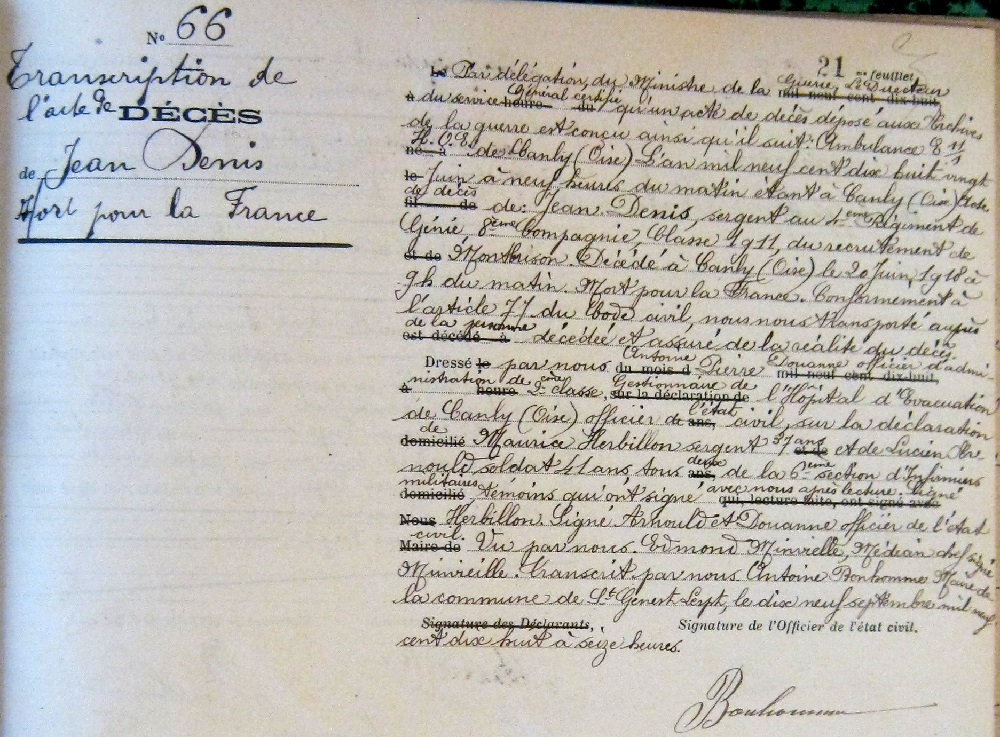 N° 66
Transcription de
l'acte de DÉCÈS
de Jean Denis
Mort pour la France
21 me feuillet
Le Par délégation, du Ministre de la Guerre, Le Directeur mil neuf cent dix-huit,
à du service heure Général certifie du qu'un acte de décès déposé aux Archives
de la guerre est conçu ainsi qu'il suit: Ambulance 8 11/1
H.O.E. né à de Canly (Oise) L'an mil neuf cent dix huit vingt
le Juin à neuf heures du matin etant à Canly (Oise) Acte
de décès fil de de: Jean Denis, sergent au 4eme Régiment de
Génie, 8eme Compagnie, Classe 1911, du recrutement de
et de Montbrison. Décédé à Canly (Oise) le 20 Juin 1918 à
9h du matin. Mort pour la France. Conformement à
l'article 77 du Code civil, nous nous transporté auprès
de la personne est décédé à décédée et assuré de la réalité du décès.
Dressé le par nous Antoine du mois d Pierre Douanne officier d'admi- mil neuf cent dix-huit,
nistration de à heure 2eme classe, Gestionnaire de sur la déclaration de l'Hôpital d'Evacuation
de Canly (Oise) officier de l'état ans, civil, sur la déclaration
de domicilié Maurice Herbillon sergent 37 ans et de et de Lucien Ar-
nould soldat 41 ans tous deux ans, de la 6eme section d'Infirmiers
militaires domicilié témoins qui ont signé avec nous après lecture. Signé qui, lecture faite, ont signé avec
Nous Herbillon. Signé Arnould et Douanne officier de l'état
civil. Maire de Vu par nous. Edmond Minvielle, Médecin chef signé
Minvielle. Transcrit par nous Antoine Bonhomme Maire de
la commune de St Genest Lerpt, le dix neuf septembre mil neuf
Signature des Déclarants, Signature de l'Officier de l'état civil.
cent dix huit à seize heures.
Bonhomme